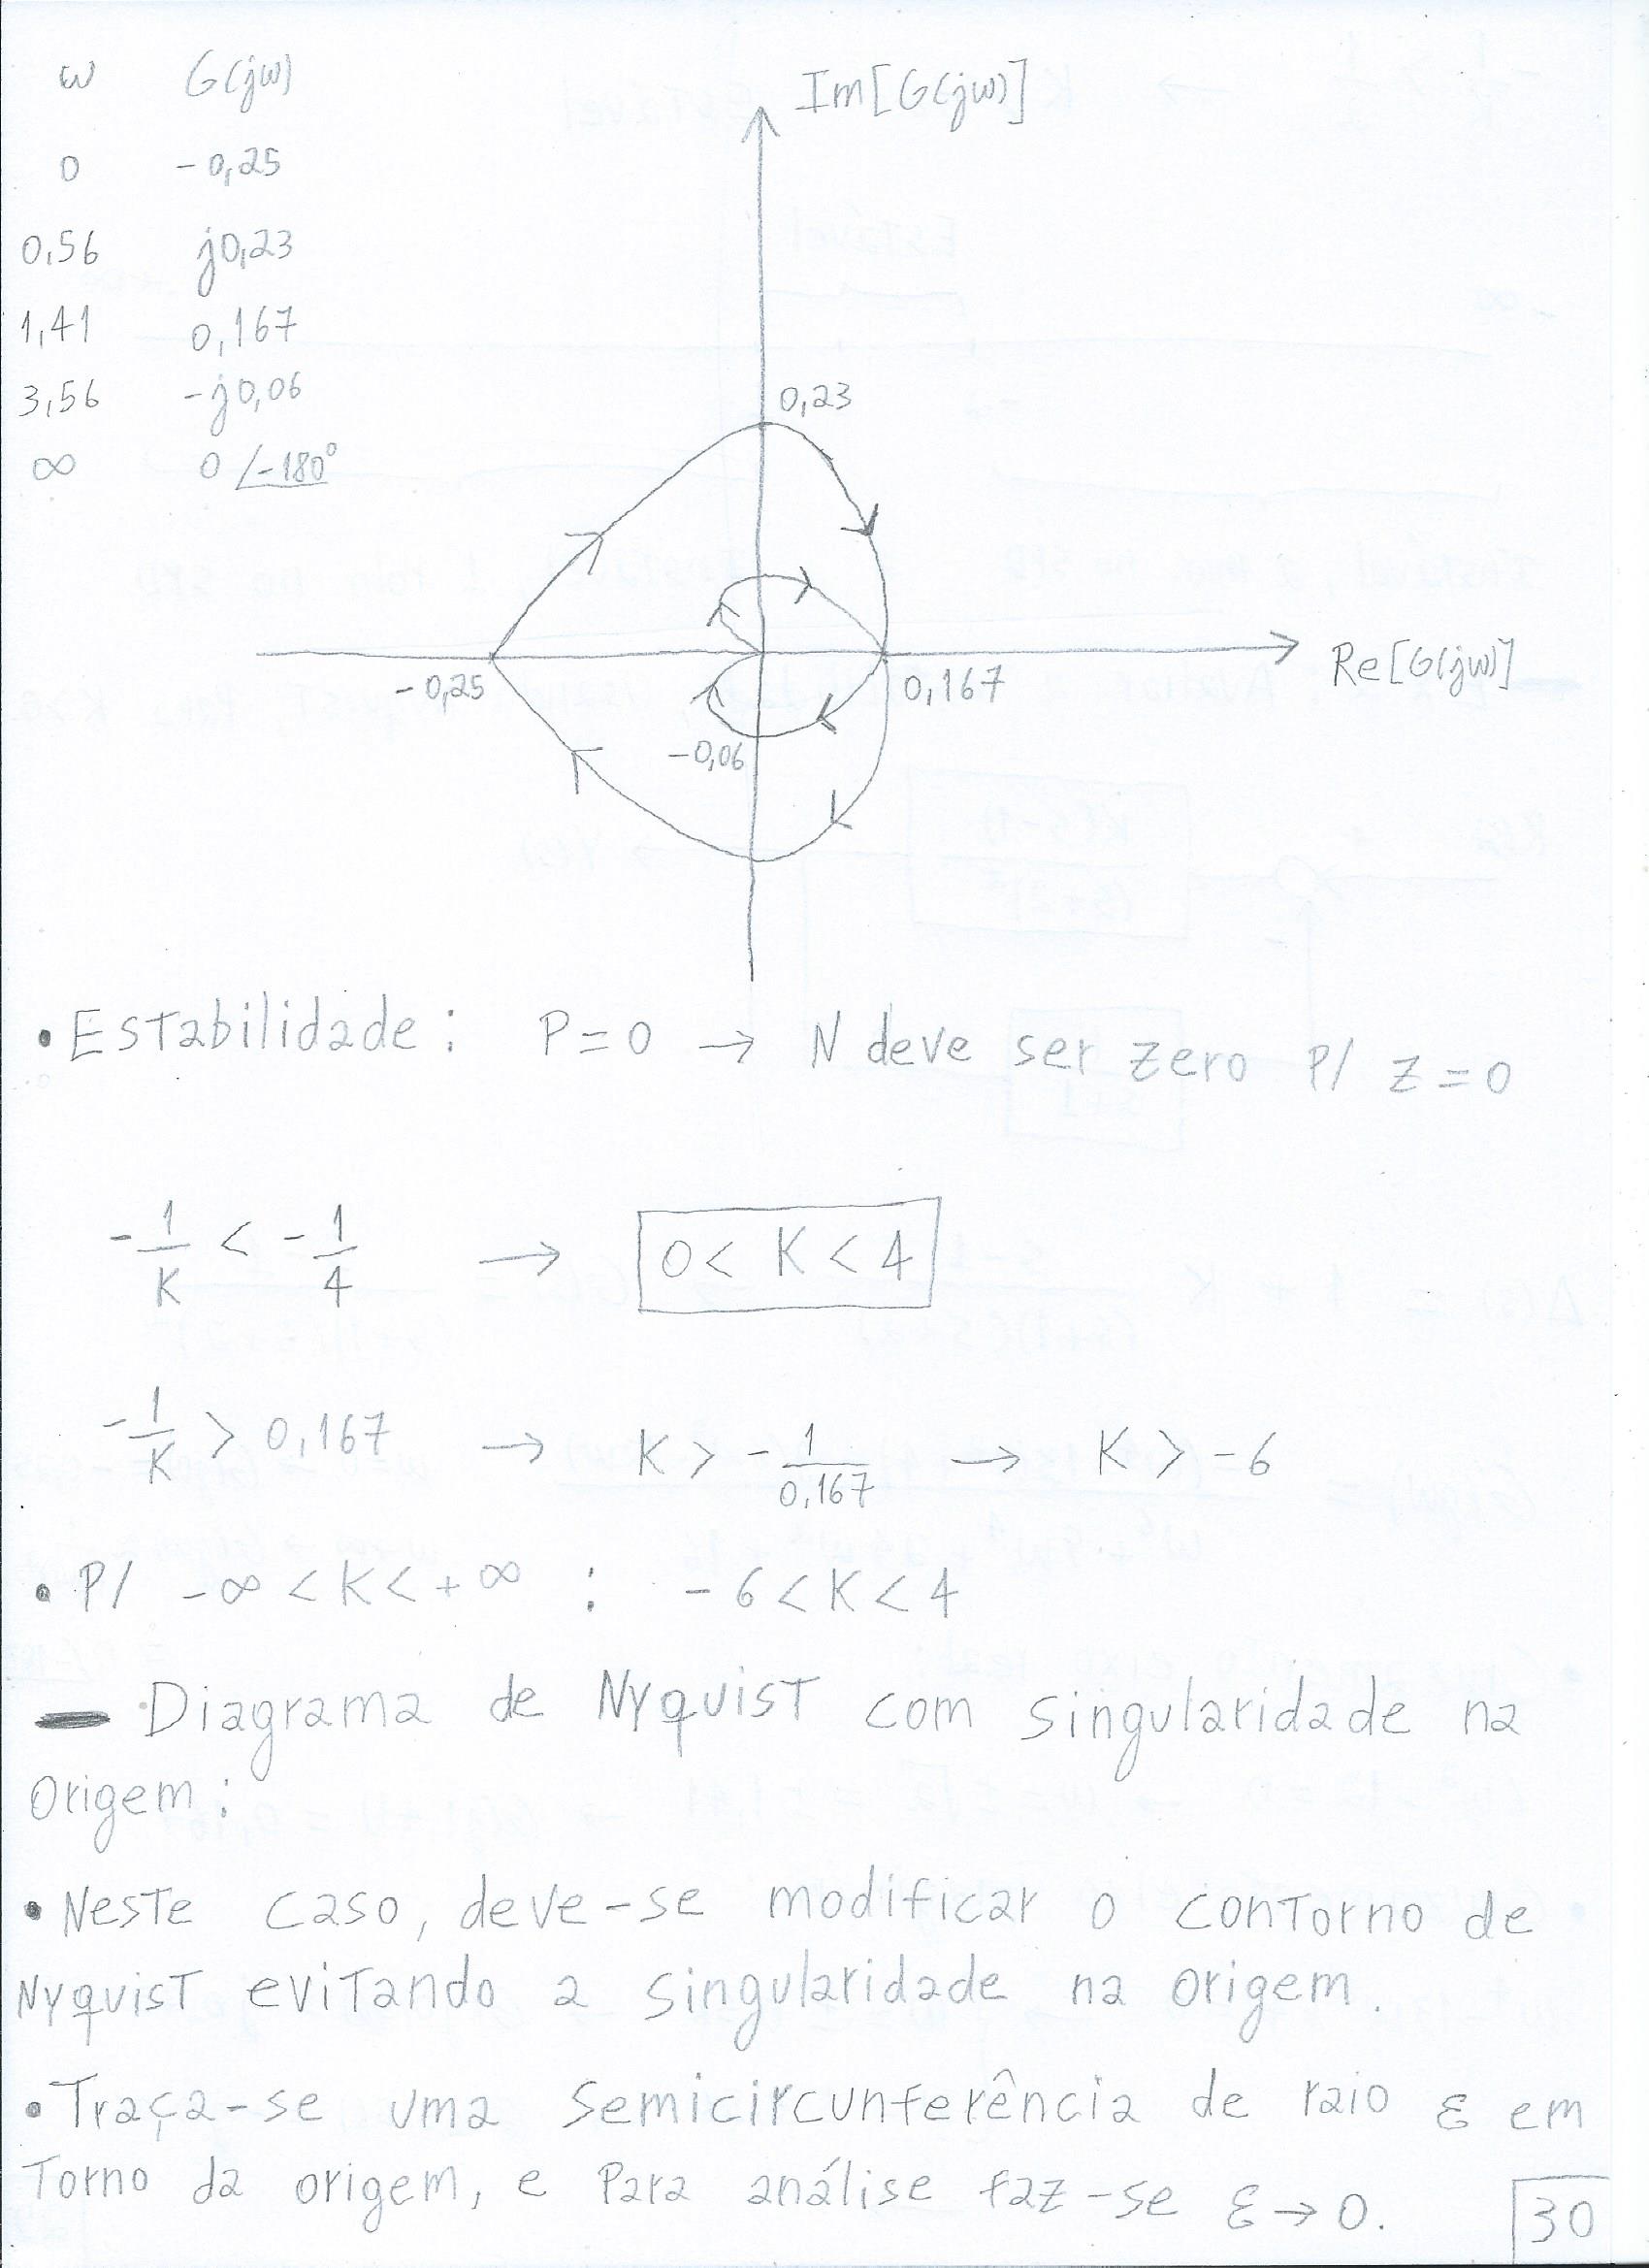 ω G(jω)
0 -0,25
0,56 j0,23
1,41 0,167
3,56 -j0,06
∞ 0 /-180°
Im[G(jω)]
0,23
-0,25
0,167
Re[G(jω)]
-0,06
• Estabilidade: P=0 → N deve ser zero P/ Z=0
-1/K < -1/4 → 0< K < 4
-1/K > 0,167 → K > -1/0,167 → K > -6
• P/ -∞ < K < +∞ : -6 < K < 4
— Diagrama de Nyquist com singularidade na
origem:
• Neste caso, deve-se modificar o contorno de
Nyquist evitando a singularidade na origem.
• Traça-se uma semicircunferência de raio ε em
torno da origem, e para análise faz-se ε→0.
30